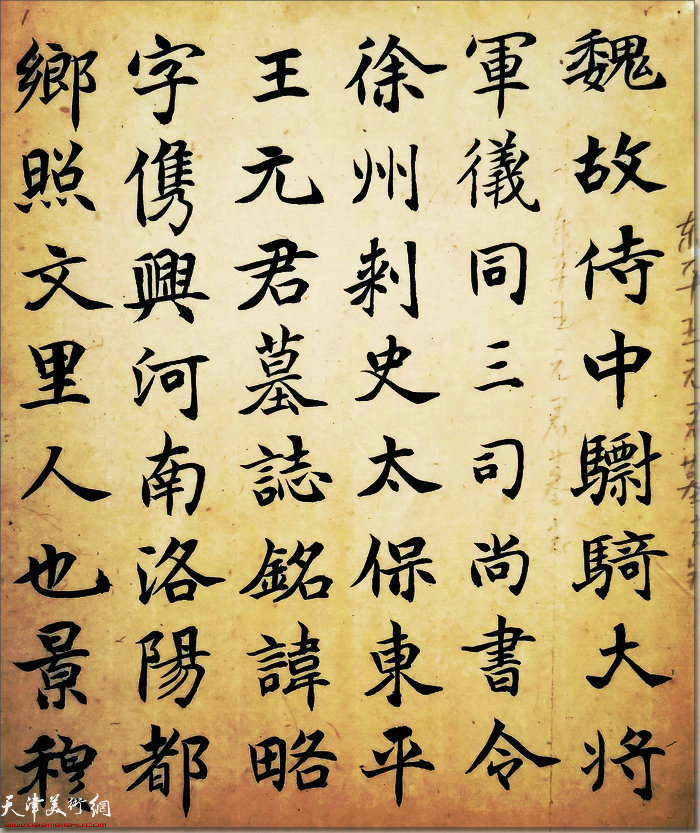 魏故侍中驃騎大将
軍儀同三司尚書令
徐州刺史太保東平
王元君墓誌銘諱略
字儁興河南洛陽都
鄉照文里人也景穆
天津美術網